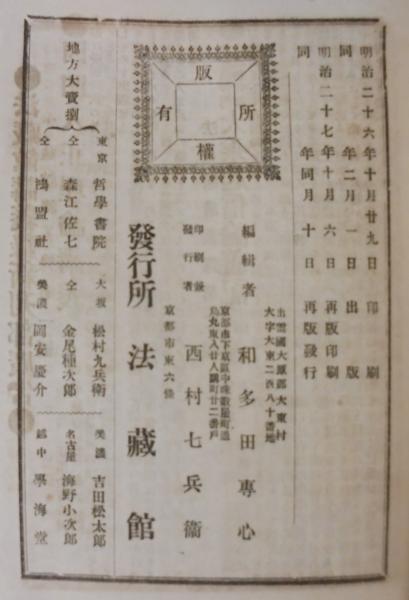 明治二十六年十月廿九日印刷
同年二月一日出版
明治二十七年十月六日再版印刷
同年同月十日再版發行
版權所有
出雲國大原郡大東村
大字大東二百八十番地
編輯者 和多田專心
京都市下京區中珠數屋町通
烏丸東入廿人講町廿二番戶
印刷兼
發行者 西村七兵衞
京都市東六條
發行所 法藏館
地方大賣捌
東京 哲學書院
仝 森江佐七
仝 鴻盟社
大坂 松村九兵衞
仝 金尾種次郎
美濃 岡安慶介
美濃 吉田松太郎
名古屋 海野小次郎
越中 學海堂